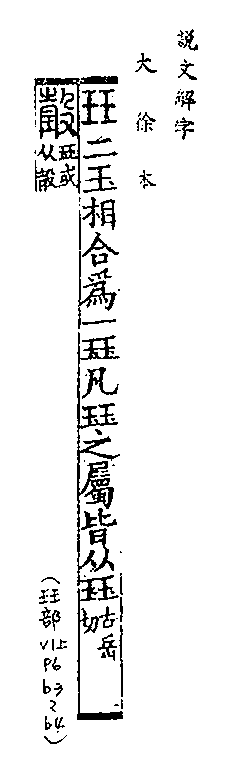 說文解字
大徐本
玨二玉相合爲一玨凡玨之屬皆从玨古岳切
瑴玨或从㱿
(玨部
VI上
P6
b3
~
b4)